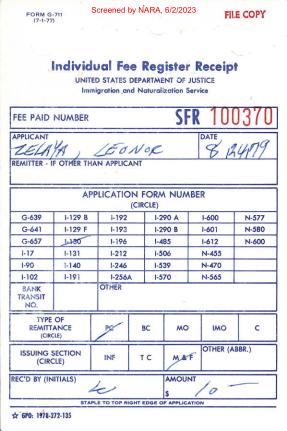 Screened by NARA, 6/2/2023
FORM G-711
(7-1-77)
FILE COPY
Individual Fee Register Receipt
UNITED STATES DEPARTMENT OF JUSTICE
Immigration and Naturalization Service
FEE PAID NUMBER SFR 100370
APPLICANT DATE
ZELAYA, LEONOR 8/24/79
REMITTER - IF OTHER THAN APPLICANT
APPLICATION FORM NUMBER
(CIRCLE)
G-639 I-129 B I-192 I-290 A I-600 N-577
G-641 I-129 F I-193 I-290 B I-601 N-580
G-657 I-130 I-196 I-485 I-612 N-600
I-17 I-131 I-212 I-506 N-455
I-90 I-140 I-246 I-539 N-470
I-102 I-191 I-256A I-570 N-565
BANK TRANSIT NO. OTHER
TYPE OF REMITTANCE (CIRCLE) PC BC MO IMO C
ISSUING SECTION (CIRCLE) INF T C M & F OTHER (ABBR.)
REC'D BY (INITIALS) AMOUNT
$ 10 —
STAPLE TO TOP RIGHT EDGE OF APPLICATION
☆ GPO: 1978-272-135